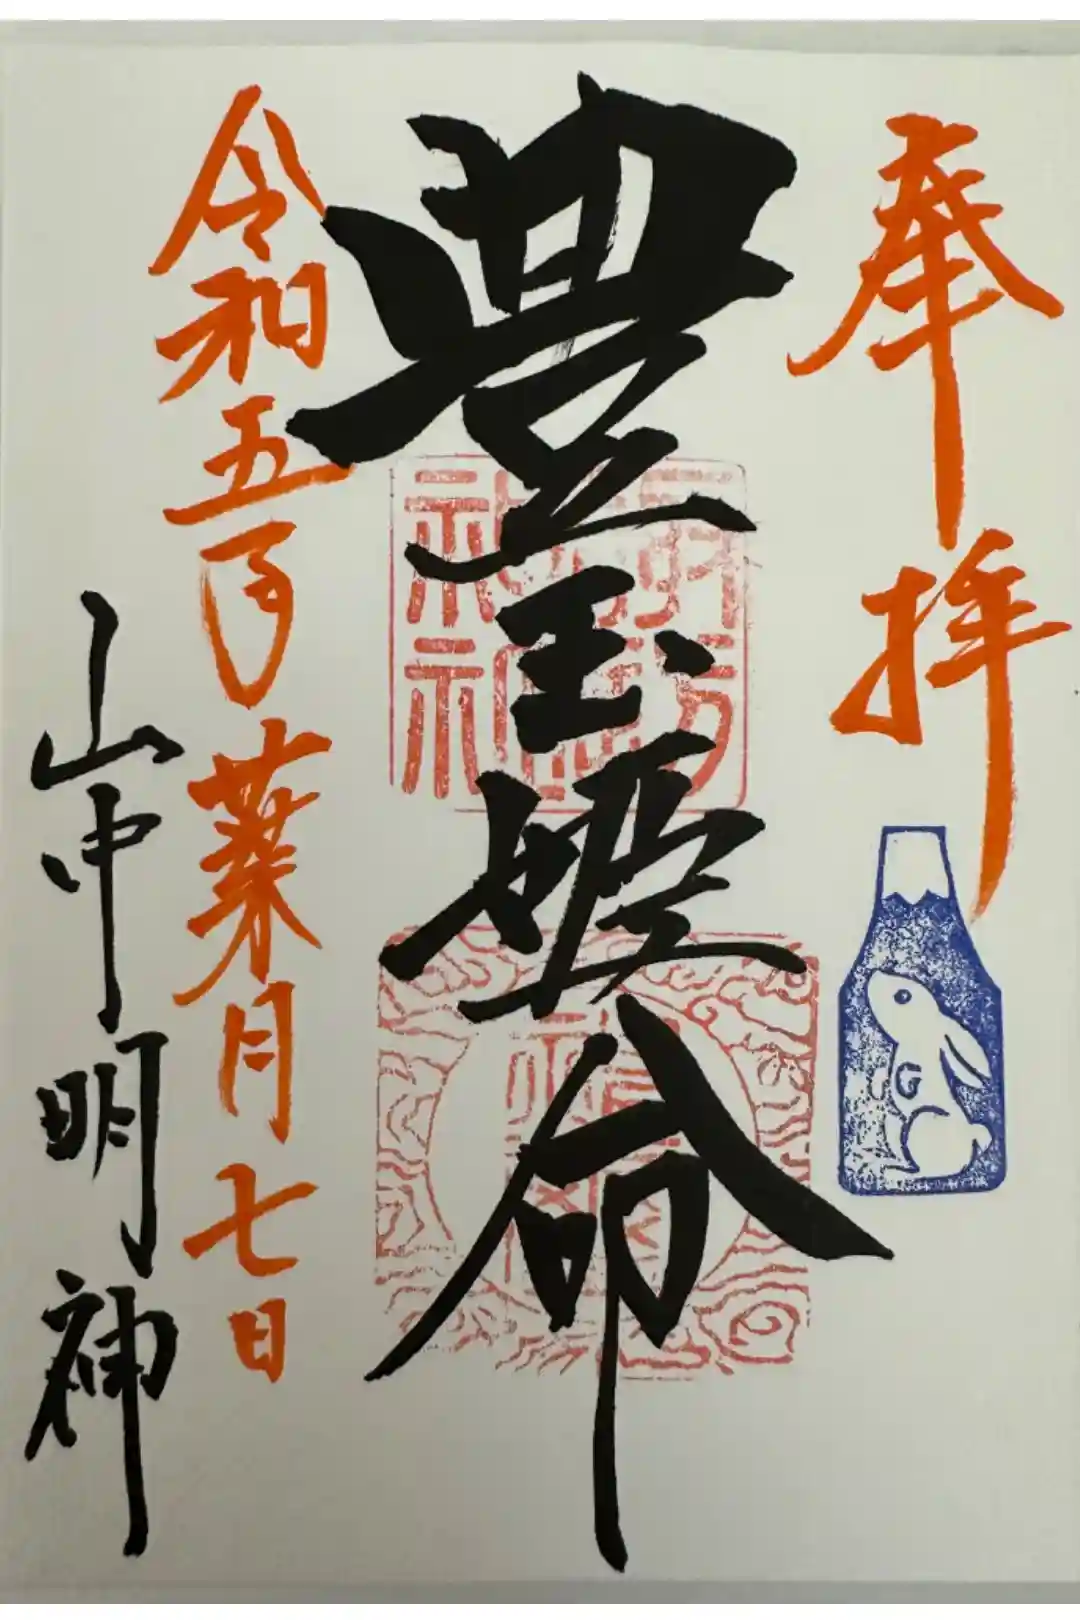 奉拝
豊玉姫命
令和五年葉月七日
山中明神